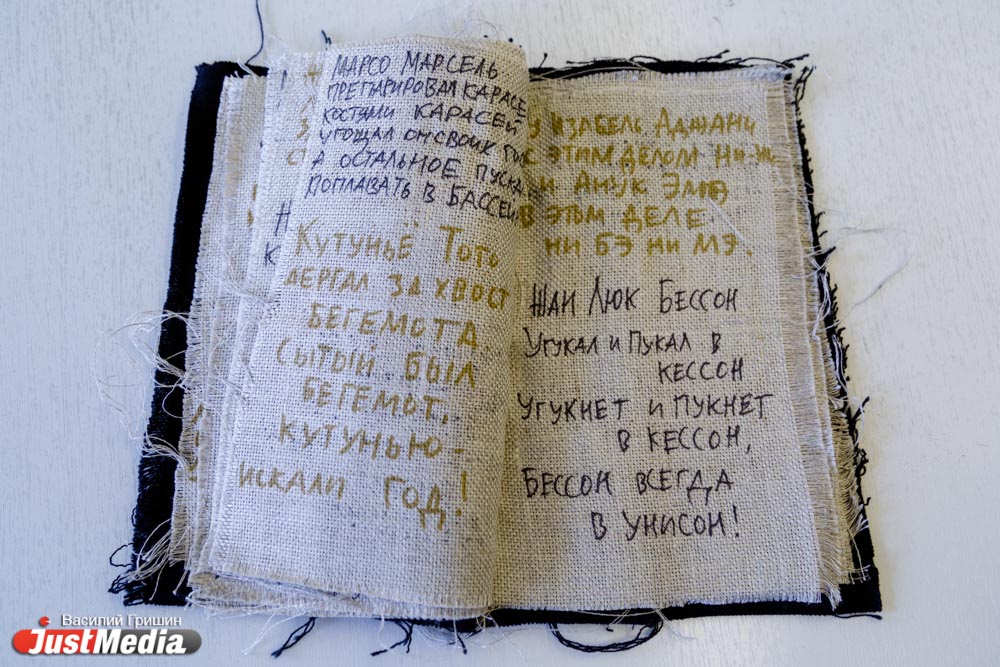 МАРСО МАРСЕЛЬ
ПРЕПАРИРОВАЛ КАРАСЕ
КОСТЯМИ КАРАСЕЙ
УГОЩАЛ ОН СВОИХ
А ОСТАЛЬНОЕ ПУСКА
ПОПЛАВАТЬ В БАССЕЙ
КУТУНЬЕ ТОТО
ДЕРГАЛ ЗА ХВОСТ
БЕГЕМОТА.
СЫТЫЙ БЫЛ
БЕГЕМОТ,
КУТУНЬЮ-
ИСКАЛИ ГОД!
У ИЗАБЕЛЬ АДЖАНИ
С ЭТИМ ДЕЛОМ НИ-НИ
И АНУК ЭМЭ,
В ЭТОМ ДЕЛЕ
НИ БЭ НИ МЭ.
ЖАН ЛЮК БЕССОН
УГУКАЛ И ПУКАЛ В
КЕССОН
УГУКНЕТ И ПУКНЕТ
В КЕССОН,
БЕССОН ВСЕГДА
В УНИСОН!
Василий Гришин
JustMedia